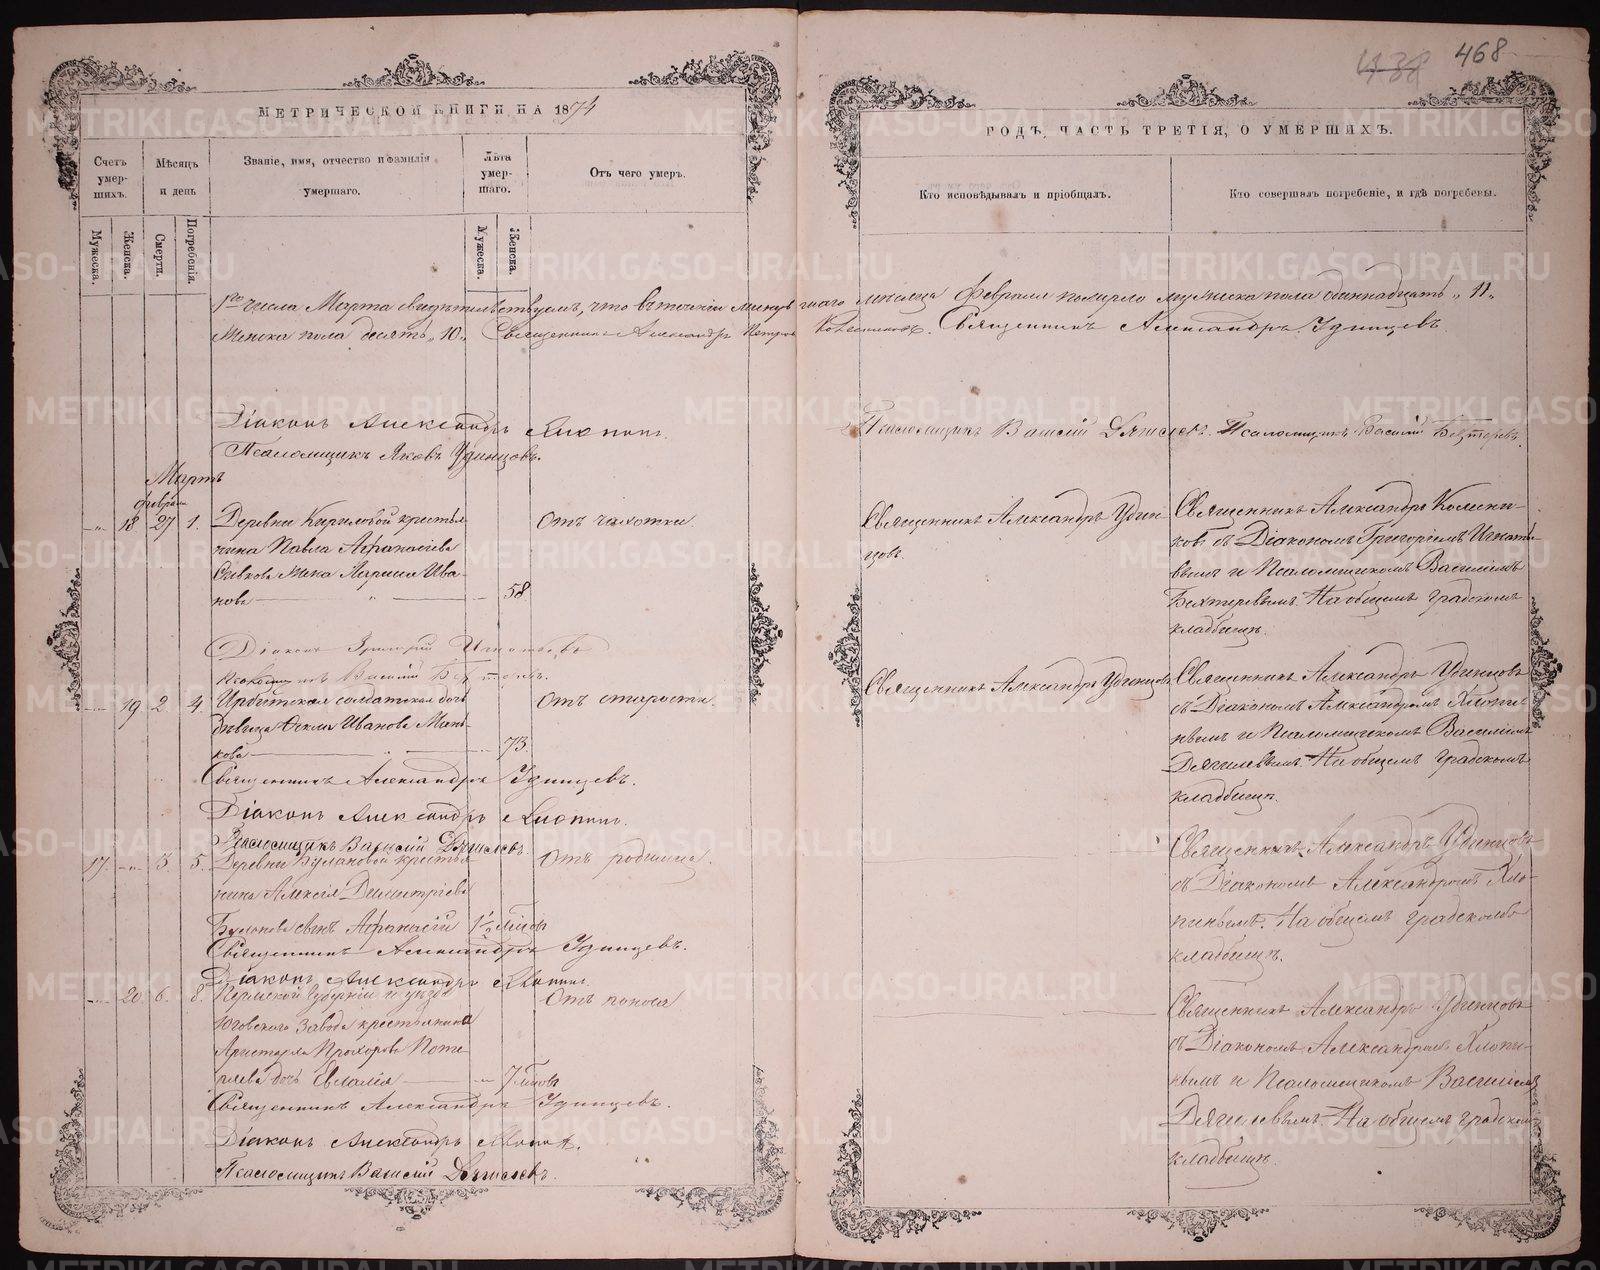 468
МЕТРИЧЕСКОЙ КНИГИ НА 1874
ГОДЪ, ЧАСТЬ ТРЕТІЯ, О УМЕРШИХЪ.
Счетъ умер-
шихъ.
Мѣсяцъ
и день
Званіе, имя, отчество и фамилія
умершаго.
Лѣта
умер-
шаго.
Отъ чего умеръ.
Кто исповѣдывалъ и пріобщалъ.
Кто совершалъ погребеніе, и гдѣ погребены.
Мужеска.
Женска.
Смерти.
Погребенія.
Мужеска.
Женска.
1го числа Марта свидѣтельствуемъ, что въ теченіи минувшаго мѣсяца Февраля померло мужеска пола одиннадцать „11„
Женска пола десять „10„ Священникъ Александръ Священникъ Александръ Удинцевъ.
Діаконъ Александръ Хлопинъ.
Псаломщикъ Василій Дягилевъ. Псаломщикъ Василій Бехтеревъ.
Псаломщикъ Яковъ Удинцовъ.
Мартъ
Февраля
18 27 1. Деревни Кириловой крестья-
нина Павла Афанасіева
жена Ива-
нова 58
Отъ чахотки
Священникъ Александръ Удин-
цовъ.
Священникъ Александръ Колесни-
ковъ съ Діакономъ Григоріемъ Игнать-
вымъ и Псаломщикомъ Василіемъ
Бехтеревымъ. На общемъ градскомъ
кладбищѣ.
Діаконъ Григорій Игнатьевъ
Псаломщикъ Василій Бехтеревъ.
19 2. 4. Ирбитская солдатская дочь
Дѣвица Ѳекла Иванова
кова 73.
Отъ старости
Священникъ Александръ Удинцовъ
Священникъ Александръ Удинцовъ
съ Діакономъ Александромъ Хлопи-
нымъ и Псаломщикомъ Василіемъ
Дягилевымъ. На общемъ градскомъ
кладбищѣ.
Священникъ Александръ Удинцевъ.
Діаконъ Александръ Хлопинъ.
Псаломщикъ Василій Дягилевъ.
17. 3. 5. Деревни Булановой крестья-
нина Алексія Димитріева
Буланова сынъ Афанасій 1½ мѣсяца
Отъ родимца.
Священникъ Александръ Удинцовъ
съ Діакономъ Александромъ Хло-
пинымъ. На общемъ градскомъ
кладбищѣ.
Священникъ Александръ Удинцевъ.
Діаконъ Александръ Хлопинъ.
20 6. 8. Пермской Губерніи и уѣзда
Юговскаго Завода крестьянина
Аристарха Прохорова
дочь Евлалія 7
Отъ поноса
Священникъ Александръ Удинцовъ
съ Діакономъ Александромъ Хлопи-
нымъ и Псаломщикомъ Василіемъ
Дягилевымъ. На общемъ градскомъ
кладбищѣ.
Священникъ Александръ Удинцевъ.
Діаконъ Александръ Хлопинъ.
Псаломщикъ Василій Дягилевъ.
METRIKI.GASO-URAL.RU